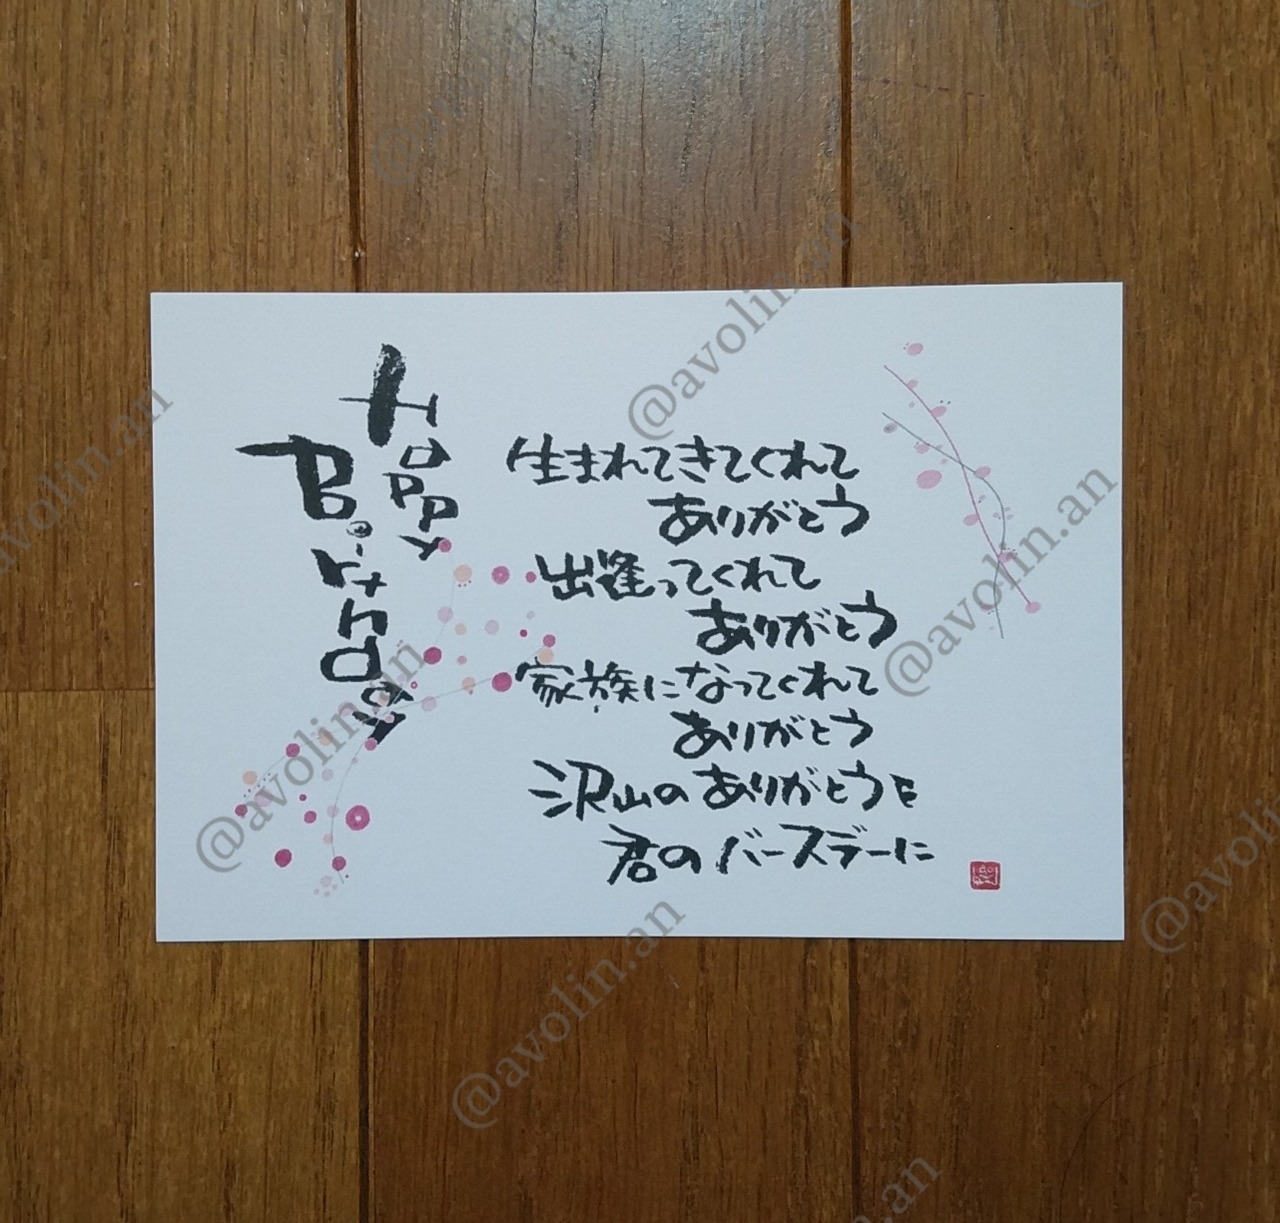 Happy
Birthday
生まれてきてくれて
ありがとう
出逢ってくれて
ありがとう
家族になってくれて
ありがとう
沢山のありがとうを
君のバースデーに
@avolin.an
@avolin.an
@avolin.an
@avolin.an
@avolin.an
@avolin.an
@avolin.an
@avolin.an